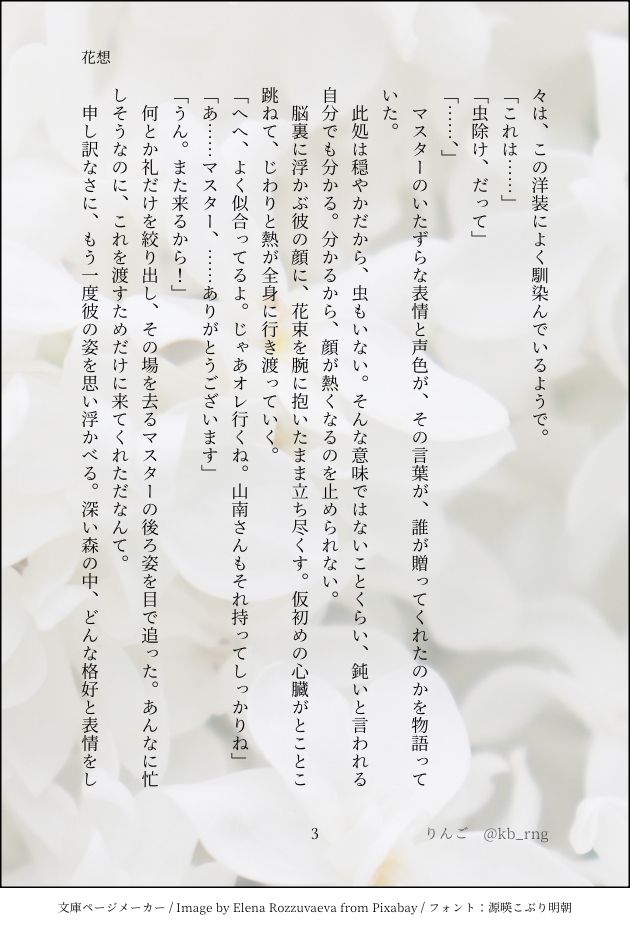 花想
々は、この洋装によく馴染んでいるようで。
「これは……」
「虫除け、だって」
「……、」
　マスターのいたずらな表情と声色が、その言葉が、誰が贈ってくれたのかを物語って
いた。
　此処は穏やかだから、虫もいない。そんな意味ではないことくらい、鈍いと言われる
自分でも分かる。分かるから、顔が熱くなるのを止められない。
　脳裏に浮かぶ彼の顔に、花束を腕に抱いたまま立ち尽くす。仮初めの心臓がとことこ
跳ねて、じわりと熱が全身に行き渡っていく。
「へへ、よく似合ってるよ。じゃあオレ行くね。山南さんもそれ持ってしっかりね」
「あ……マスター、……ありがとうございます」
「うん。また来るから！」
　何とか礼だけを絞り出し、その場を去るマスターの後ろ姿を目で追った。あんなに忙
しそうなのに、これを渡すためだけに来てくれただなんて。
　申し訳なさに、もう一度彼の姿を思い浮かべる。深い森の中、どんな格好と表情をし
3
りんご　@kb_rng
文庫ページメーカー / Image by Elena Rozzuvaeva from Pixabay / フォント：源暎こぶり明朝